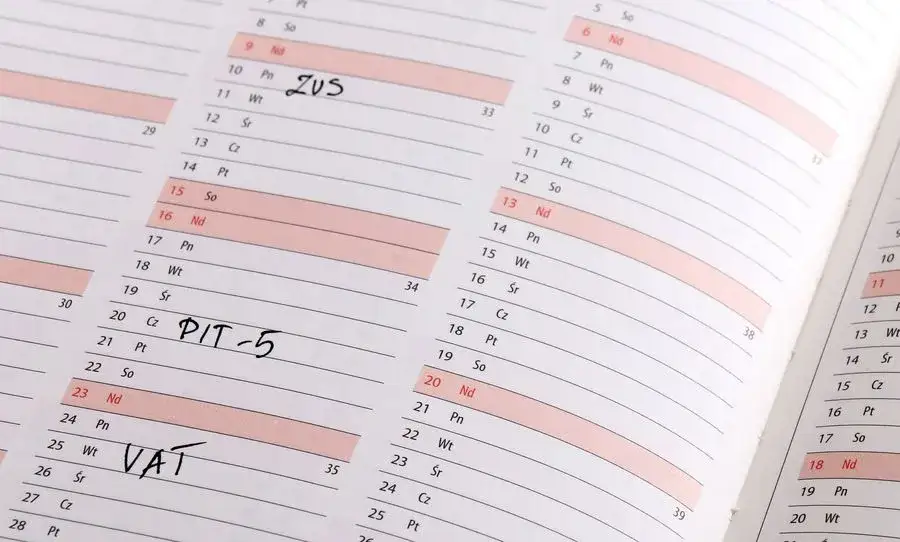 Pt
8 So
9 Nd
10 Pn ZUS
11 Wt
33
12 Śr
13 Cz
14 Pt
15 So
16 Nd
34
17 Pn
18 Wt
19 Śr
20 Cz PIT-5
21 Pt
22 So
23 Nd
35
24 Pn
25 Wt VAT
26 Śr
27 Cz
28 Pt
29
30
5 So
6 Nd
7 Pn
8 Wt
9 Śr
10 Cz
11 Pt
12 So
13 Nd
38
14 Pn
15 Wt
16 Śr
17 Cz
18 Pt
19 So
20 Nd
39
21 Pn
22 Wt
23 Śr
24 Cz
25 Pt
10
11
12 P
13 Wt
14 Śr
15 Cz
16 Pt
17 So
18 Nd
19 Pn
20 Wt